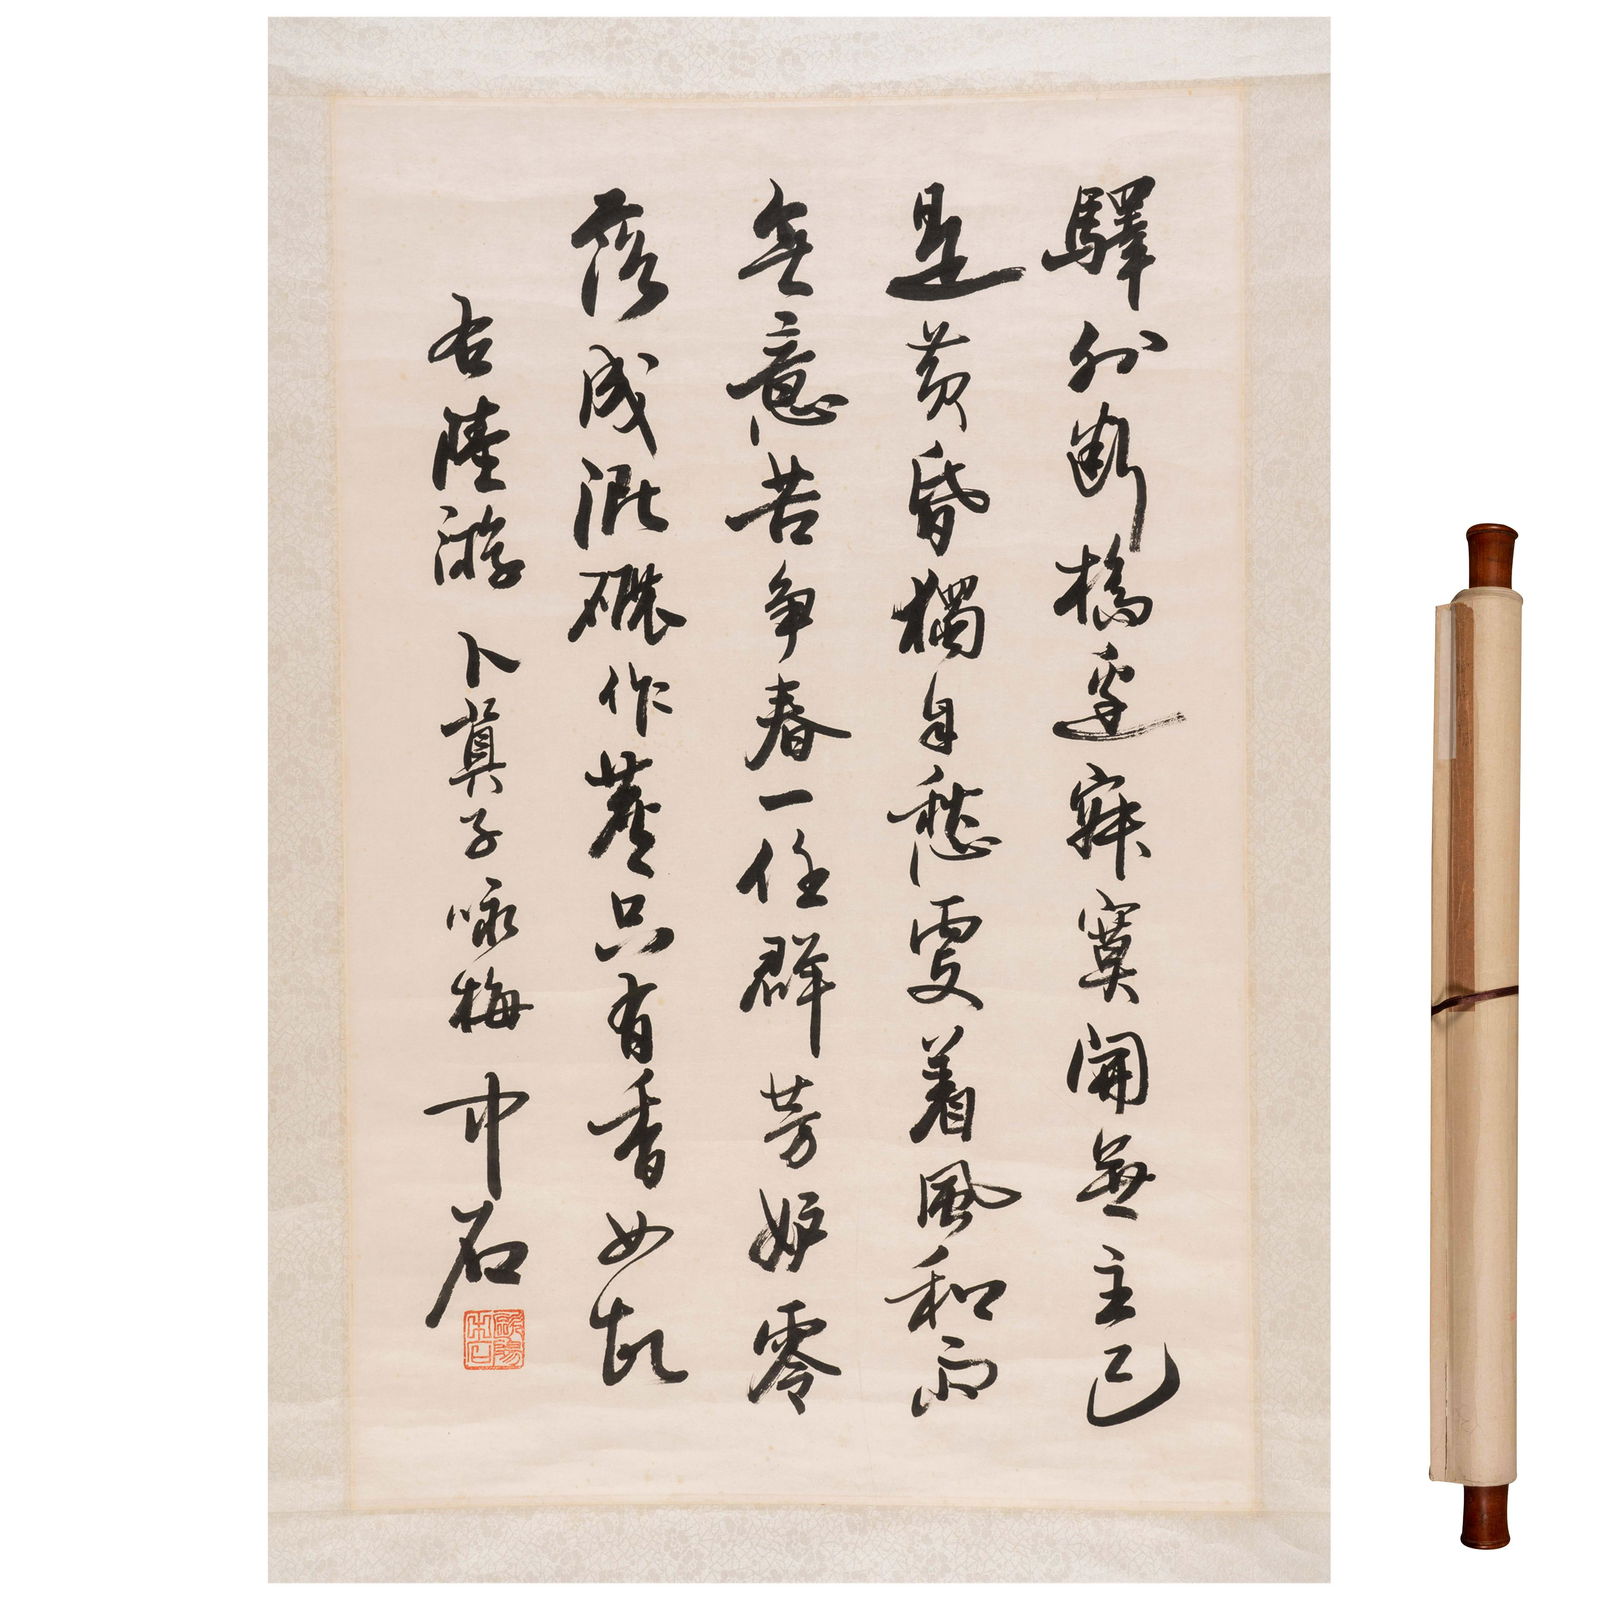 驛外斷橋邊寂寞開無主已
是黃昏獨自愁更着風和雨
無意苦争春一任群芳妒零
落成泥碾作塵只有香如故
右陸游卜算子咏梅中石
歐陽中石